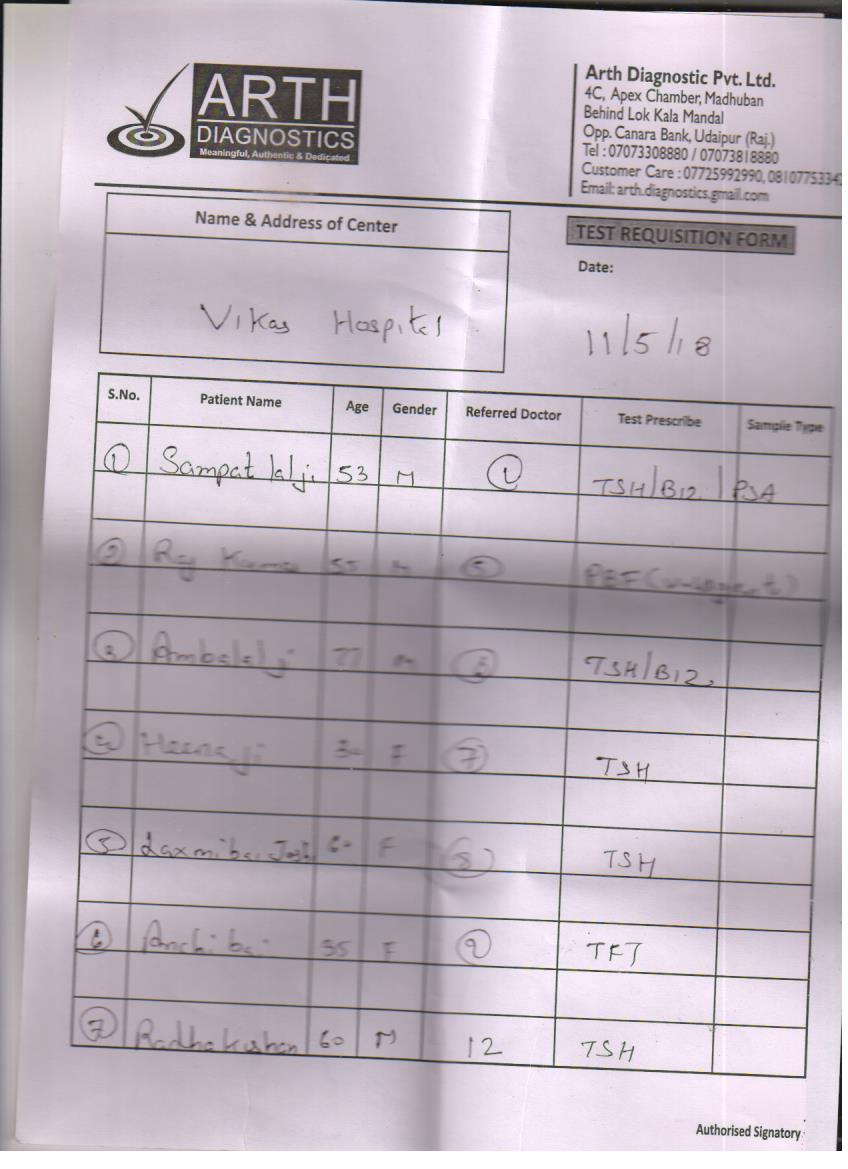 ARTH
DIAGNOSTICS
Meaningful, Authentic & Dedicated
Arth Diagnostic Pvt. Ltd.
4C, Apex Chamber, Madhuban
Behind Lok Kala Mandal
Opp. Canara Bank, Udaipur (Raj.)
Tel : 07073308880 / 07073818880
Customer Care : 07725992990, 0810775334
Email: arth.diagnostics.gmail.com
Name & Address of Center
TEST REQUISITION FORM
Date:
Vikas Hospital
11/5/18
S.No. Patient Name Age Gender Referred Doctor Test Prescribe Sample Type
1 Sampat lalji 53 M 1 TSH/B12/PSA
2 Raj 55 M 5
3 Ambalalji 77 M TSH/B12,
4 Heenaji 30 F 7 TSH
5 Laxmibai Joshi 60 F 8 TSH
6 35 F 9 TFT
7 Radhakishan 60 M 12 TSH
Authorised Signatory